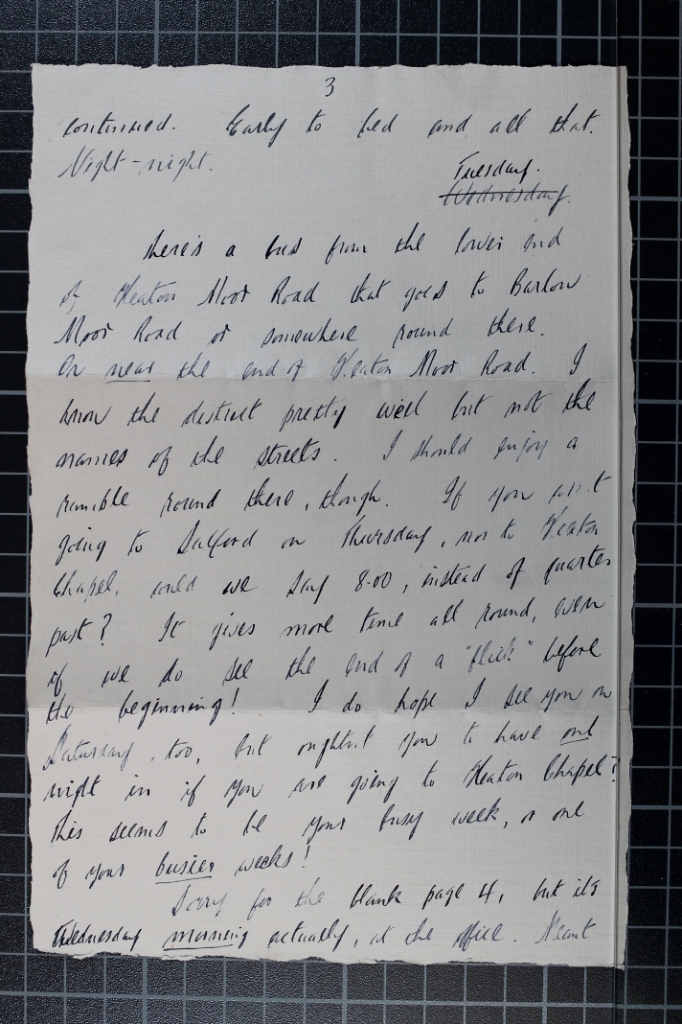 3
continued. Early to bed and all that.
Night-night.
Tuesday.
Wednesday.
There's a bus from the lower end
of Heaton Moor Road that goes to Barlow
Moor Road or somewhere round there.
Or near the end of Heaton Moor Road. I
know the district pretty well but not the
names of the streets. I should enjoy a
ramble round there, though. If you
going to Salford on Thursday, not to Heaton
Chapel, could we say 8-00, instead of quarter
past? It gives more time all round, even
if we do see the end of a "flick" before
the beginning! I do hope I see you on
Saturday, too, but oughtn't you to have one
night in if you are going to Heaton Chapel?
This seems to be your busy week, or one
of your busier weeks!
Sorry for the blank page 4, but it's
Wednesday morning actually, at the office. Meant